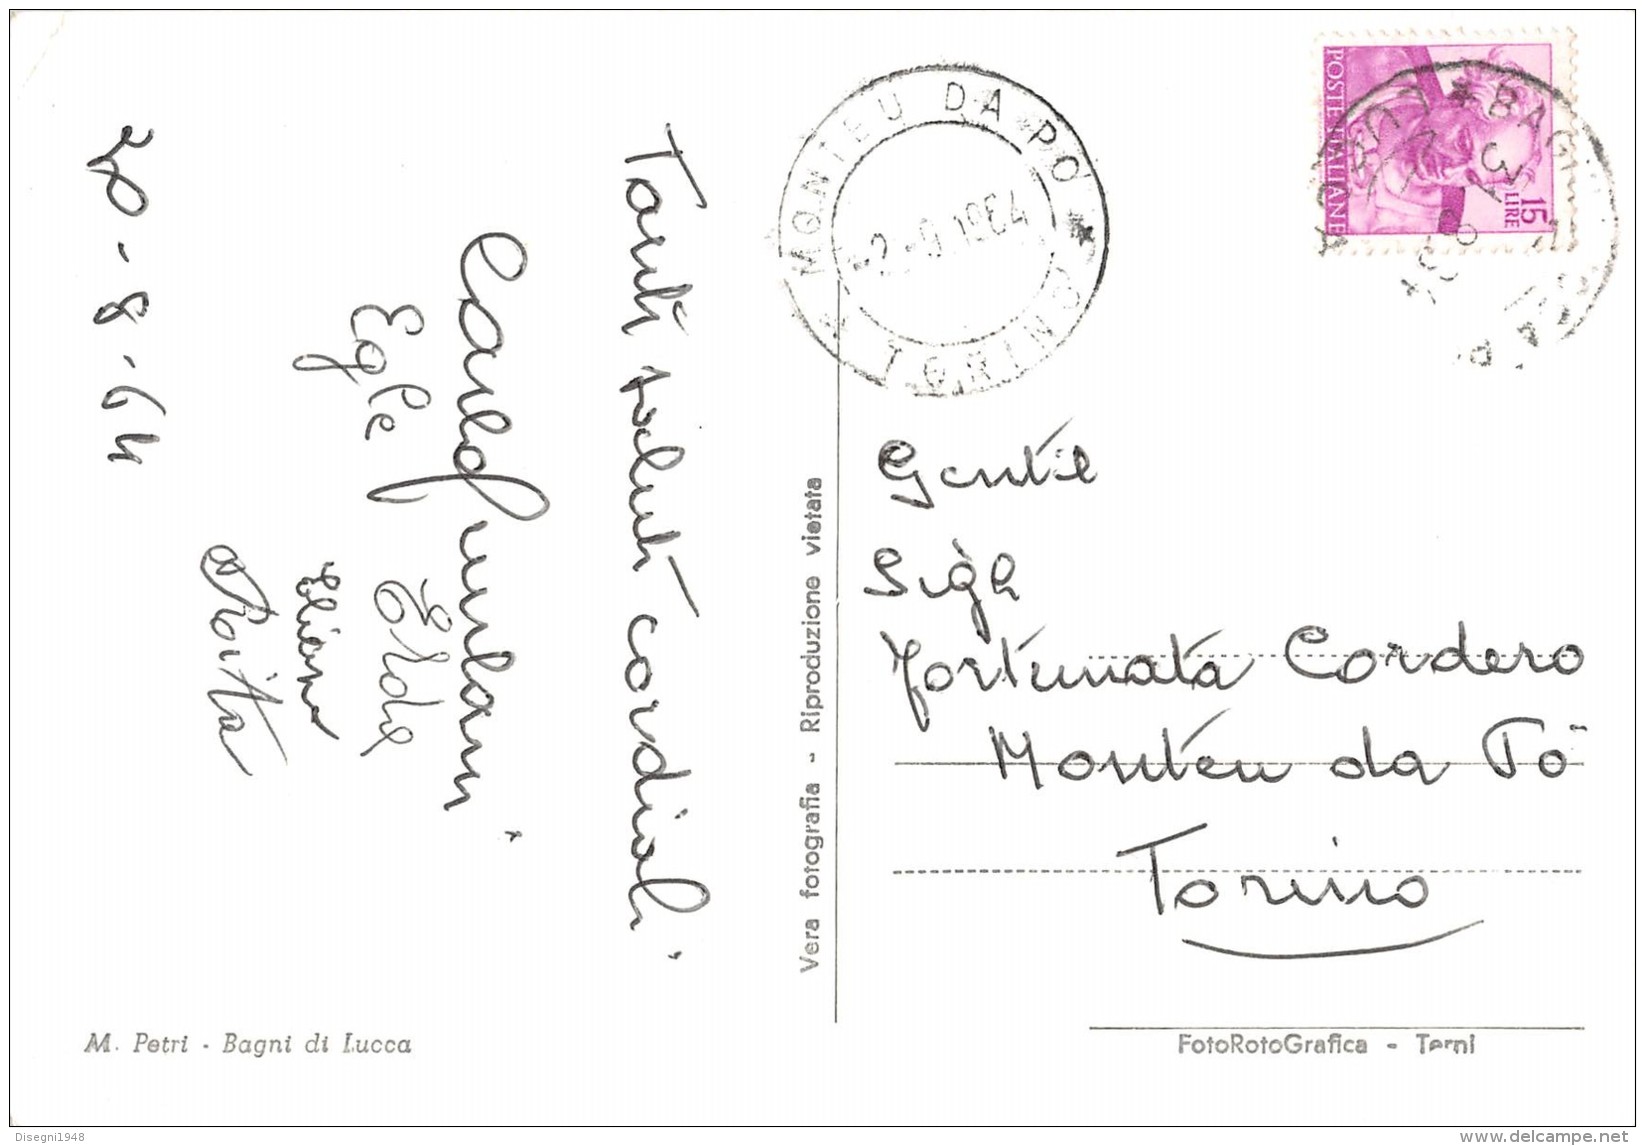 Tanti saluti cordiali
Egle Elda
Eliana
Rita
30-8-64
MONTEU DA PO
* TORINO *
-2.-9.1964
POSTE ITALIANE
15
LIRE
Gentile
Sig.a
Fortunata Cordero
Monteu da Po
Torino
Vera fotografia - Riproduzione vietata
M. Petri - Bagni di Lucca
FotoRotoGrafica - Terni
Disegni1948
www.delcampe.net